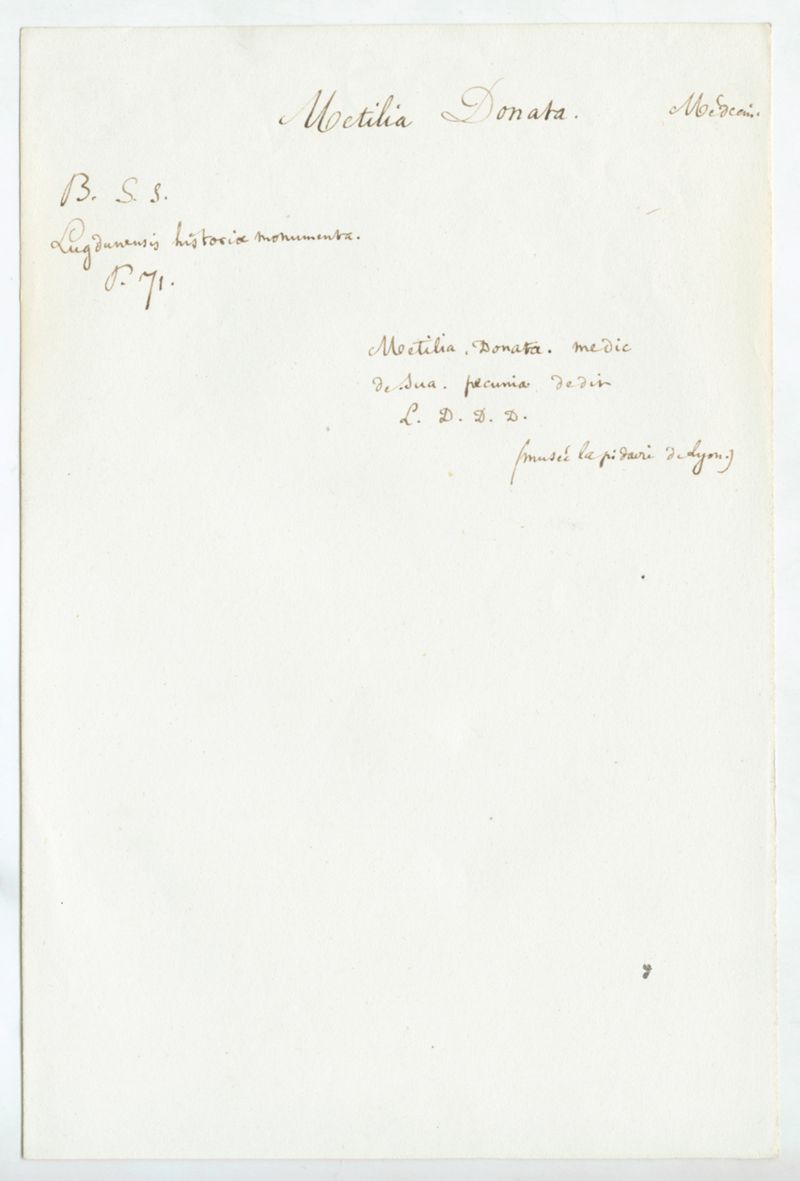 Metilia Donata. Médecin.
B. S. S.
Lugdunensis historiæ monumenta.
P. 71.
Metilia. Donata. medic
de sua. pecunia dedit
L. D. D. D.
(musée lapidaire de Lyon.)